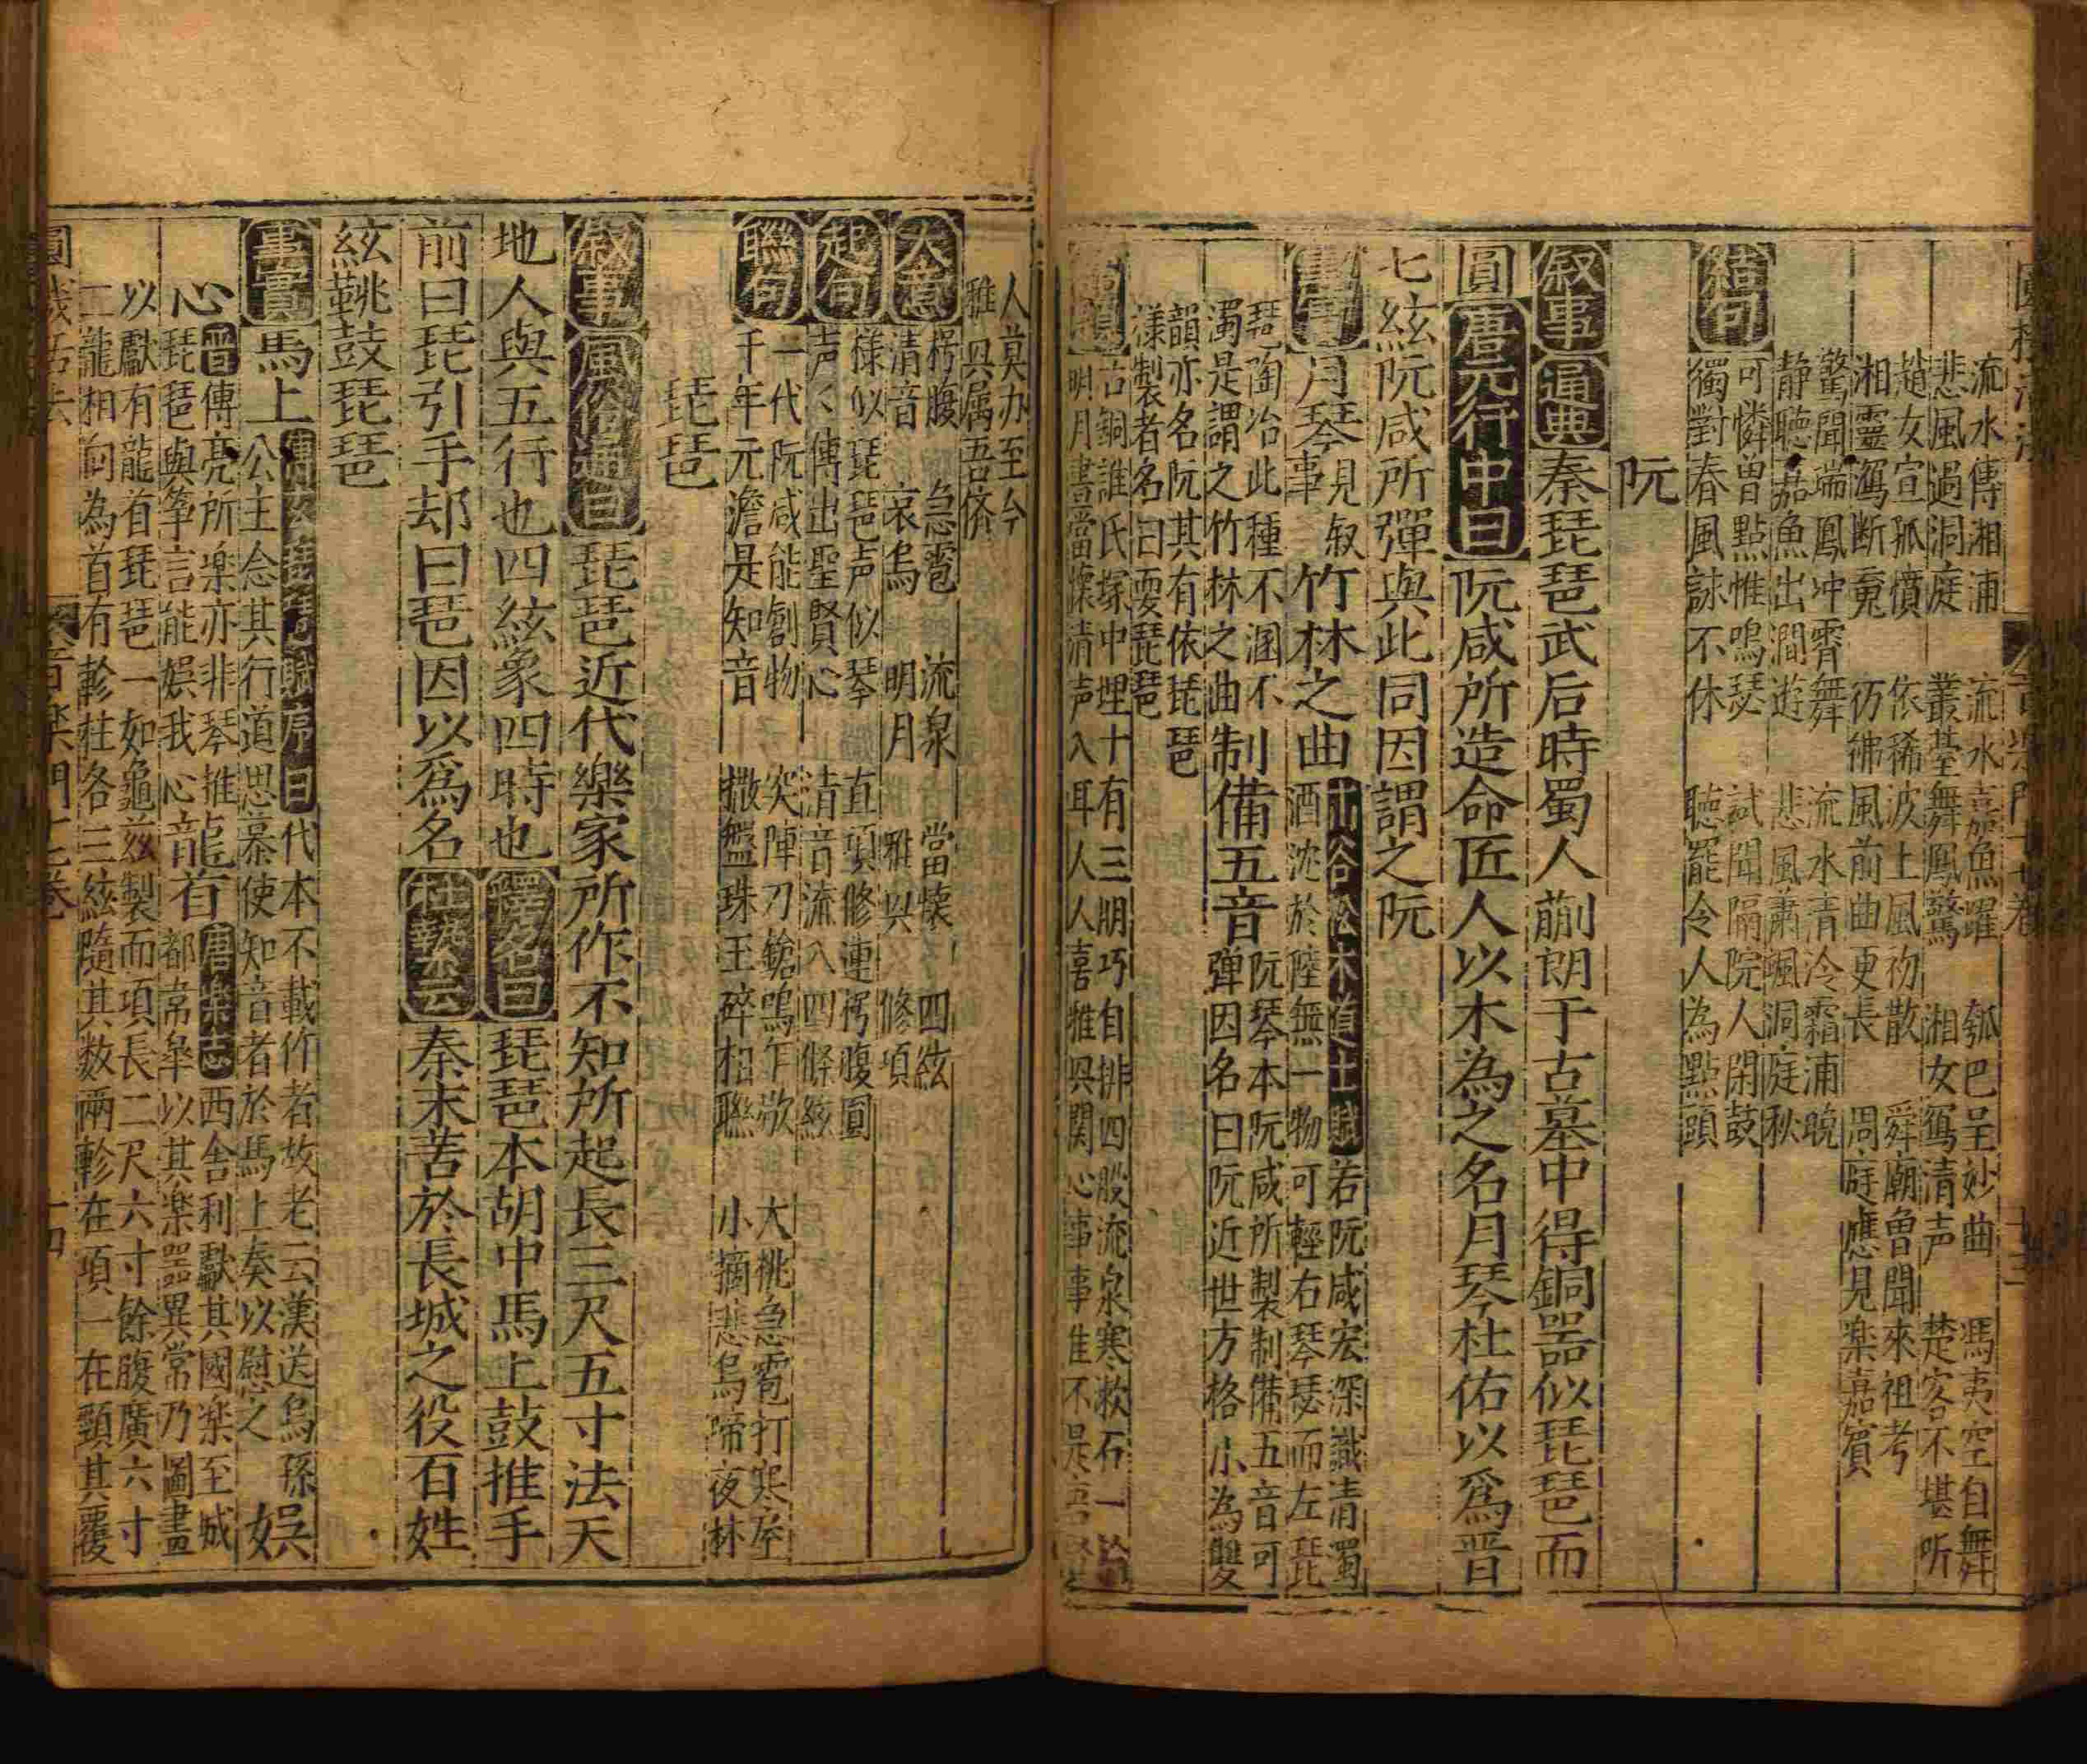 流水傳湘浦　流水嘉魚躍　瓠巴呈妙曲　馮夷空自舞
悲風過洞庭　叢臺舞鳳驚　湘女寫清声　楚客不堪听
趙女宣孤憤　依稀波上風初散　舜廟魯聞來祖考
湘靈寫断蒐　彷彿風前曲更長　周庭應見楽嘉賓
驚聞端鳳冲霄舞　流水清冷霜浦晚
静聽嘉魚出澗遊　悲風蕭颯洞庭秋
結句
可憐曾點惟鳴瑟　試聞隔院人閑鼓
獨對春風詠不休　聽罷令人為點頭
阮
叙事　通典　秦琵琶武后時蜀人蒯朗于古墓中得銅器似琵琶而
圓　唐元行中曰　阮咸所造命匠人以木為之名月琴杜佑以爲晋
七絃阮咸所彈與此同因謂之阮
事實　月琴　見叙事　竹林之曲　山谷松木道士賦　若阮咸宏深識清濁
酒沈於陸無一物可輕右琴瑟而左琵
琶陶冶此種不涸不
濁是謂之竹林之曲　制備五音　阮琴本阮咸所製制備五音可
弹因名曰阮近世方格小為雙
韻亦名阮其有依琵琶
樣製者名曰耍琵琶
古銅誰氏塚中埋　十有三朋巧自排　四股流泉寒漱石
明月晝當懷　清声入耳人人喜　雅具関心事事佳　不是吾
人莫办至今
雅具属吾儕
大意
楞腹　急雹　流泉　當懐　四絃
清音　哀烏　明月　雅具　修項
起句
様似琵琶声似琴　直項修連楞腹圓
声〻傳出聖賢心　清音流入四條絃
聯句
一代阮咸能創物　突陣刀鎗鳴乍歇　大桃急雹打寒座
千年元澹是知音　撒盤珠玉碎相聯　小摘悲烏啼夜林
琵琶
叙事　風俗通曰　琵琶近代樂家所作不知所起長三尺五寸法天
地人與五行也四絃象四時也　釋名曰　琵琶本胡中馬上鼓推手
前曰琵引手却曰琶因以爲名　杜摯云　秦末苦於長城之役百姓
絃鞉鼓琵琶
事實　馬上　傅玄琵琶賦序曰　代本不載作者故老云漢送烏孫
公主念其行道思慕使知音者於馬上奏以慰之　娯
心　晋　傳亮所楽亦非琴推
琵琶與筝言能娯我心　龍首　唐楽志　西舍利獻其國楽至城
都韋皐以其楽器異常乃圖畫
以獻有龍首琵琶一如龜玆製而項長二尺六寸餘腹廣六寸
二龍相向為首有軫柱各三絃隨其数兩軫在項一在頸其覆